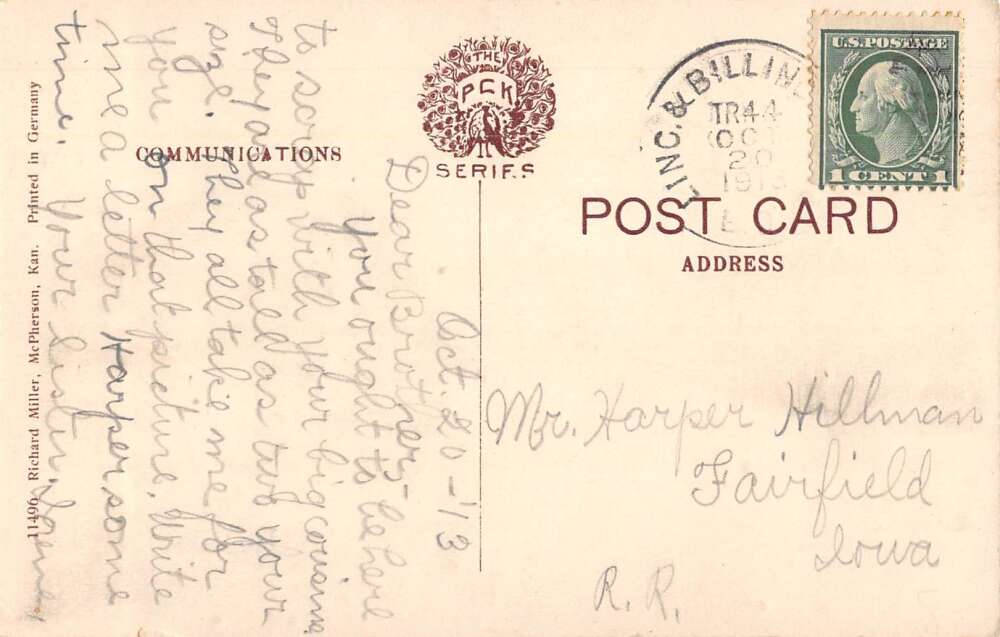 COMMUNICATIONS
THE
PCK
SERIES
LINC. & BILLIN
TR 44
OC
20
191
U.S. POSTAGE
1 CENT 1
POST CARD
ADDRESS
Oct. 20 - '13
Dear Brother,-
You ought to be here
to scrap with your big cousins
They are as tall as two your
size. They all take me for
you on that picture. Write
me a letter Harper some
time.
Your sister,
Mr. Harper Hillman
Fairfield
Iowa
R. R.
11496 Richard Miller, McPherson, Kan. Printed in Germany